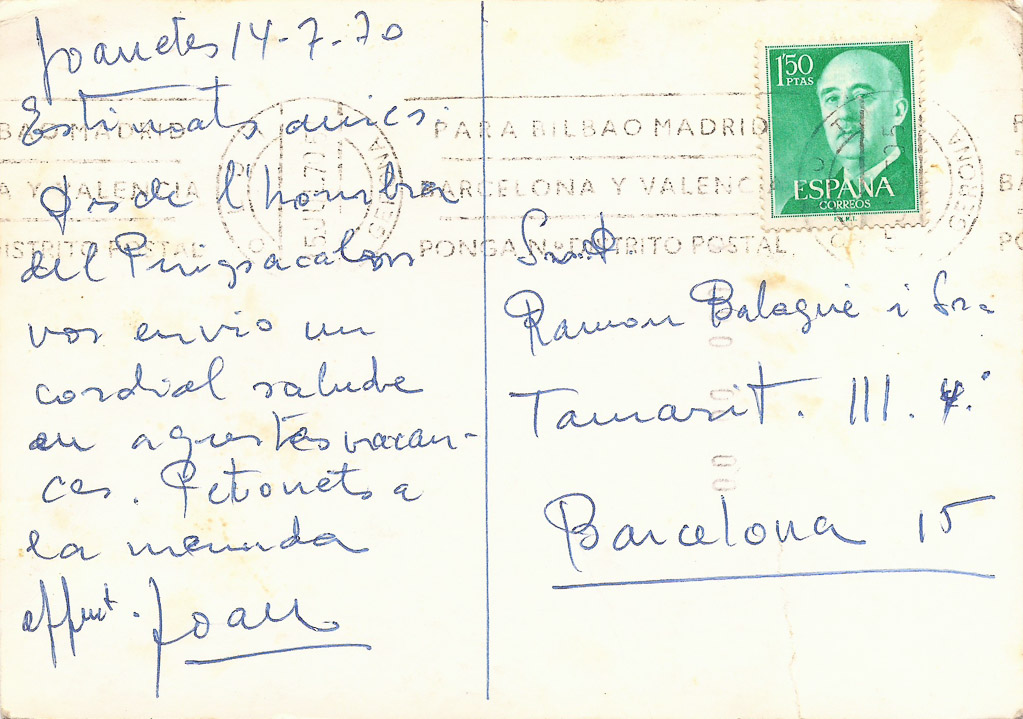 Joanetes 14-7-70
Estimats amics:
Des de l'hombra
del Puigsacalm
vos envio un
cordial salude
en aquestes vacan-
ces. Petonets a
la menuda
affmt. Joan
1'50
PTAS
ESPAÑA
CORREOS
PARA BILBAO MADRID
BARCELONA Y VALENCIA
PONGA Nº DISTRITO POSTAL
GERONA
Ramon Balagué i Sra.
Tamarit. 111. 4º
Barcelona 15